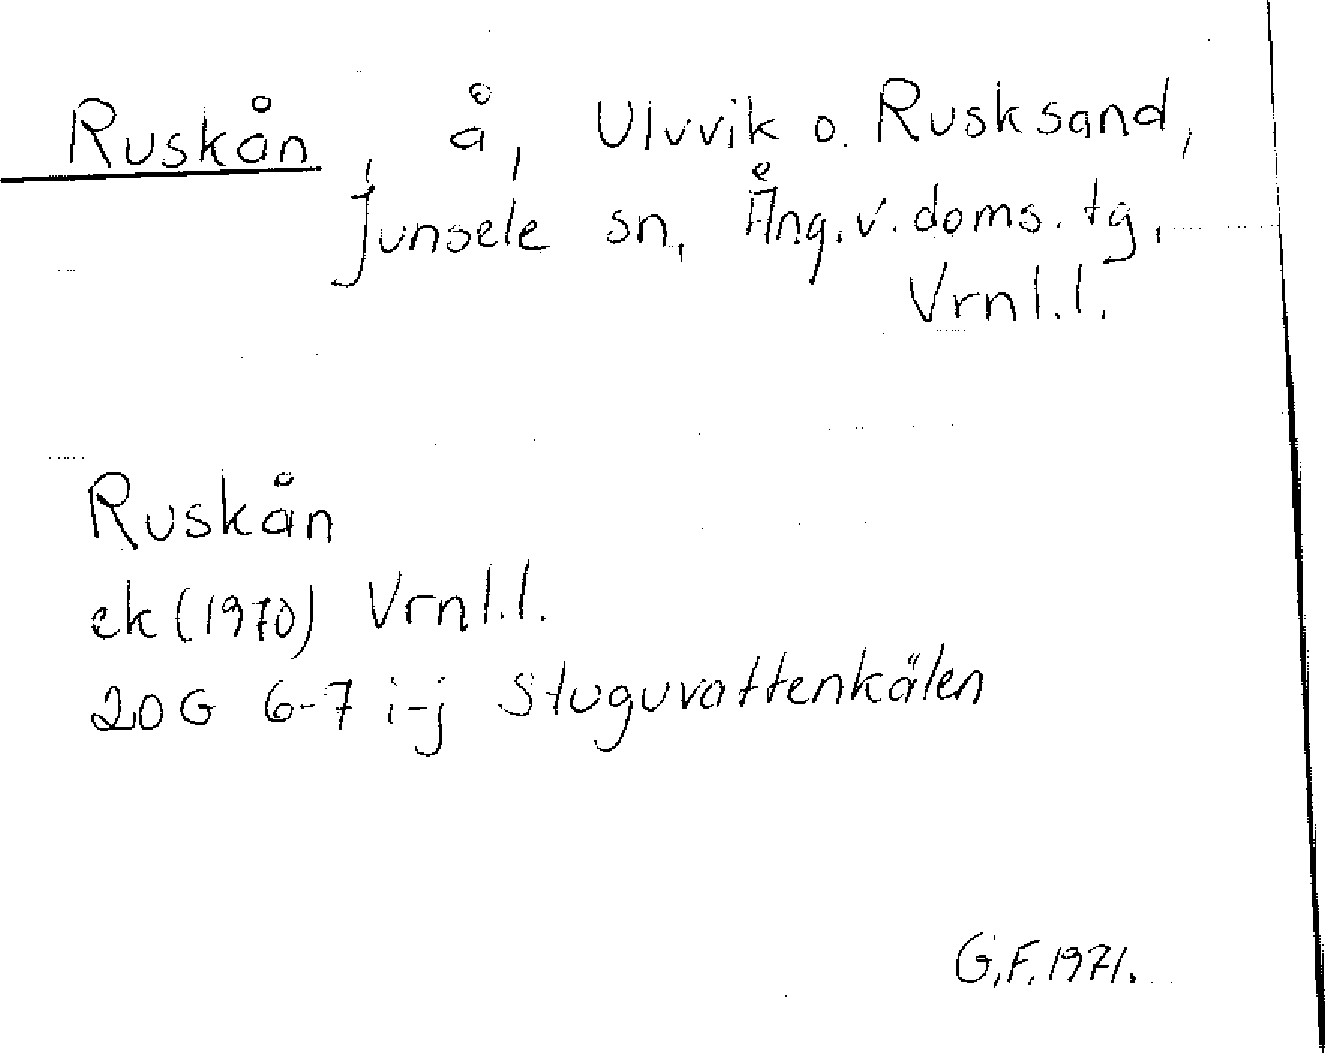 Ruskån, å, Ulvvik o. Rusksand,
Junsele sn, Ång.v.doms.tg,
Vrnl.l.
Ruskån
ek(1970) Vrnl.l.
20G 6-7 i-j Stuguvattenkälen
G.F.1971.